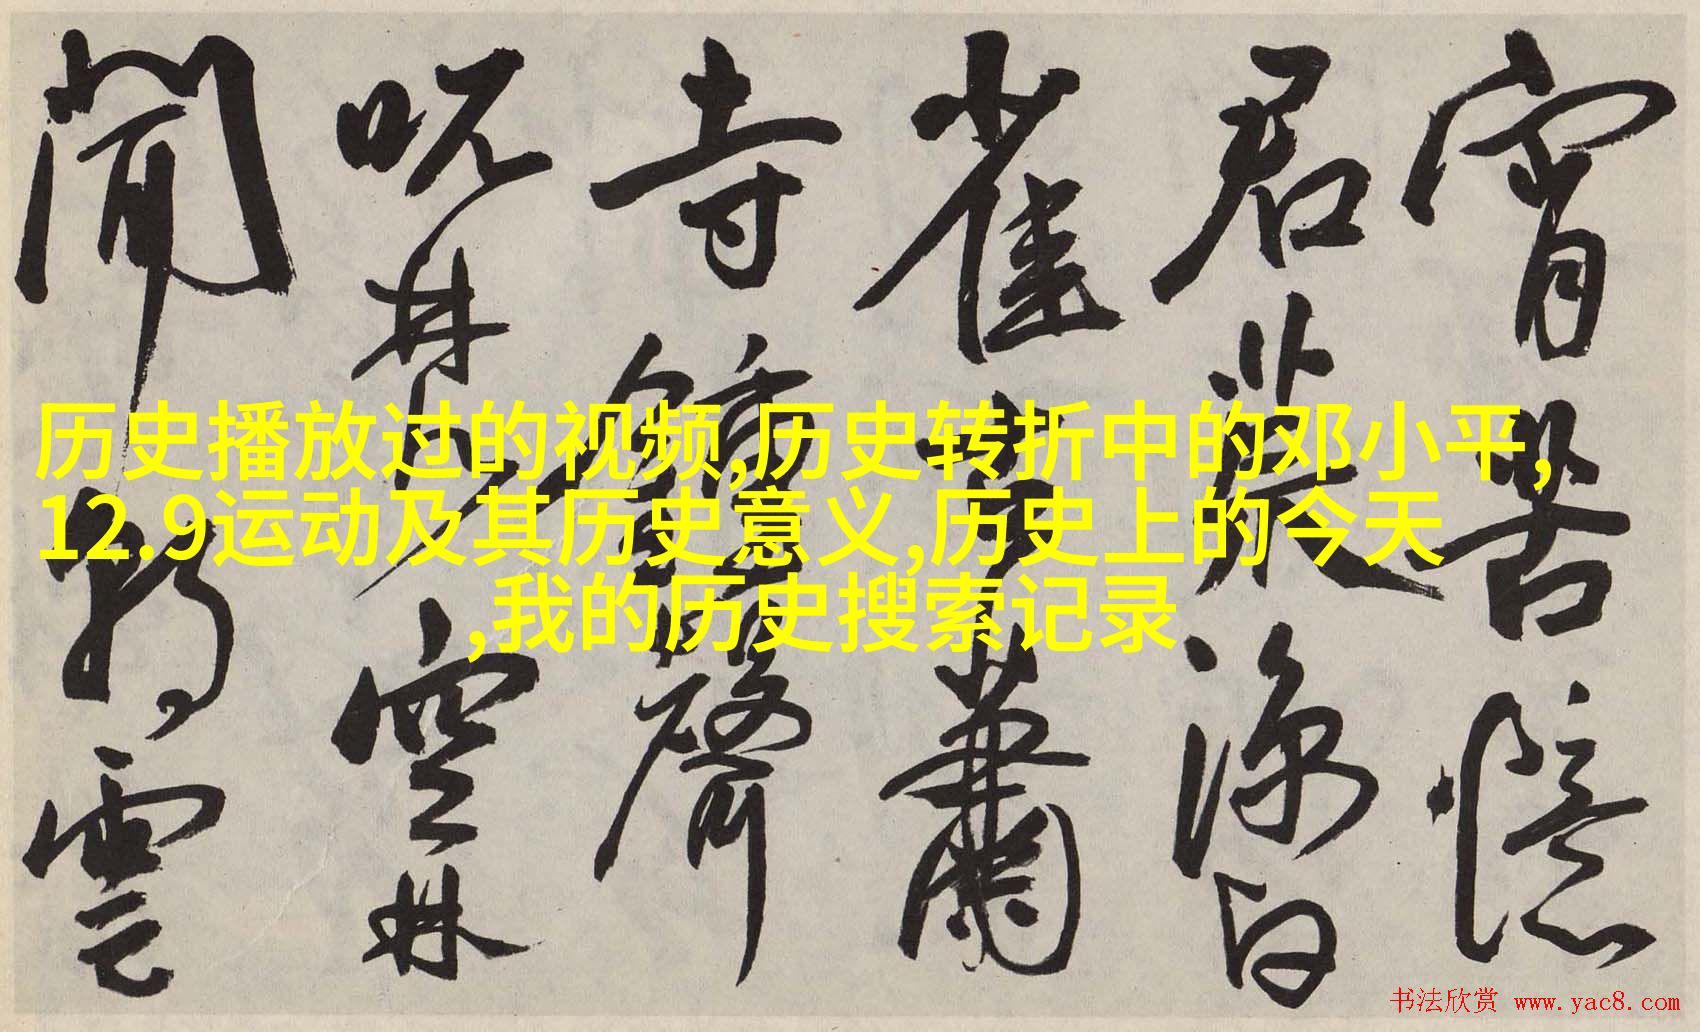 历史播放过的视频,历史转折中的邓小平,
12.9运动及其历史意义,历史上的今天
,我的历史搜索记录
宵苦憶
君深
雀蕭
寺鐘聲
空林
聞雲
书法欣赏 www.yac8.com